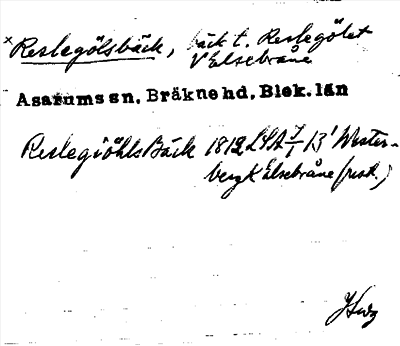 × Reslegölsbäck, bäck t. Reslegölet
V Elsebråne
Asarums sn, Bräkne hd, Blek. län
Reslegiöhls Bäck 1812 LSA 7/1 B' Wester-
berg K Elsebråne (resk.)